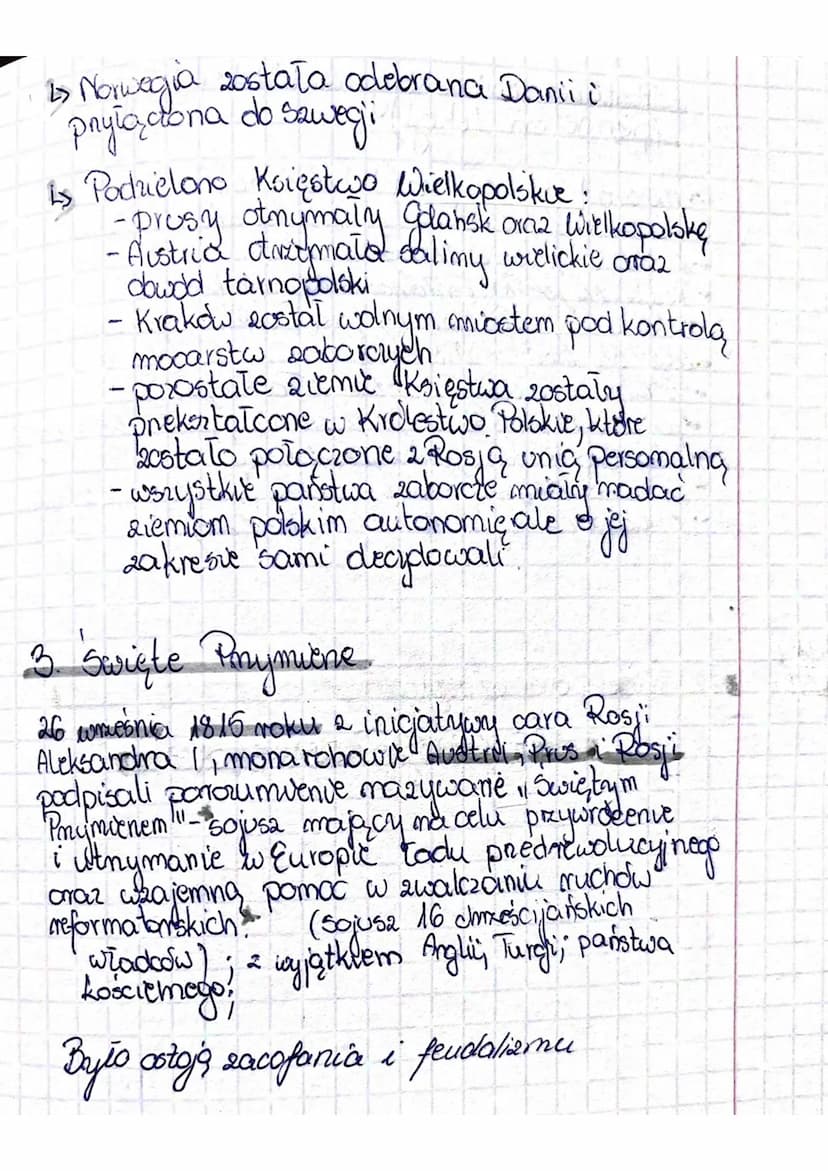 ↳ Norwegia została odebrana Danii i
przyłączona do Szwecji
↳ Podzielono Księstwo Wielkopolskie :
- prusy otrzymały Gdańsk oraz Wielkopolskę
- Austria otrzymała salimy wielickie oraz
obwód tarnopolski
- Kraków został wolnym miastem pod kontrolą
mocarstw zaborczych
- pozostałe ziemie Księstwa zostały
przekształcone w Królestwo Polskie, które
zostało połączone z Rosją unią personalną
- wszystkie państwa zaborcze miały nadać
ziemiom polskim autonomię ale o jej
zakresie sami decydowali.
3. Święte Przymierze.
26 września 1815 roku z inicjatywy cara Rosji
Aleksandra I, monarchowie Austrii, Prus i Rosji
podpisali porozumienie nazywane „Świętym
Przymierzem" - sojusz mający na celu przywrócenie
i utrzymanie w Europie ładu przedrewolucyjnego
oraz wzajemną pomoc w zwalczaniu ruchów
reformatorskich. (sojusz 16 chrześcijańskich
władców) ; z wyjątkiem Anglii, Turcji; państwa
kościelnego;
Było ostoją zacofania i feudalizmu